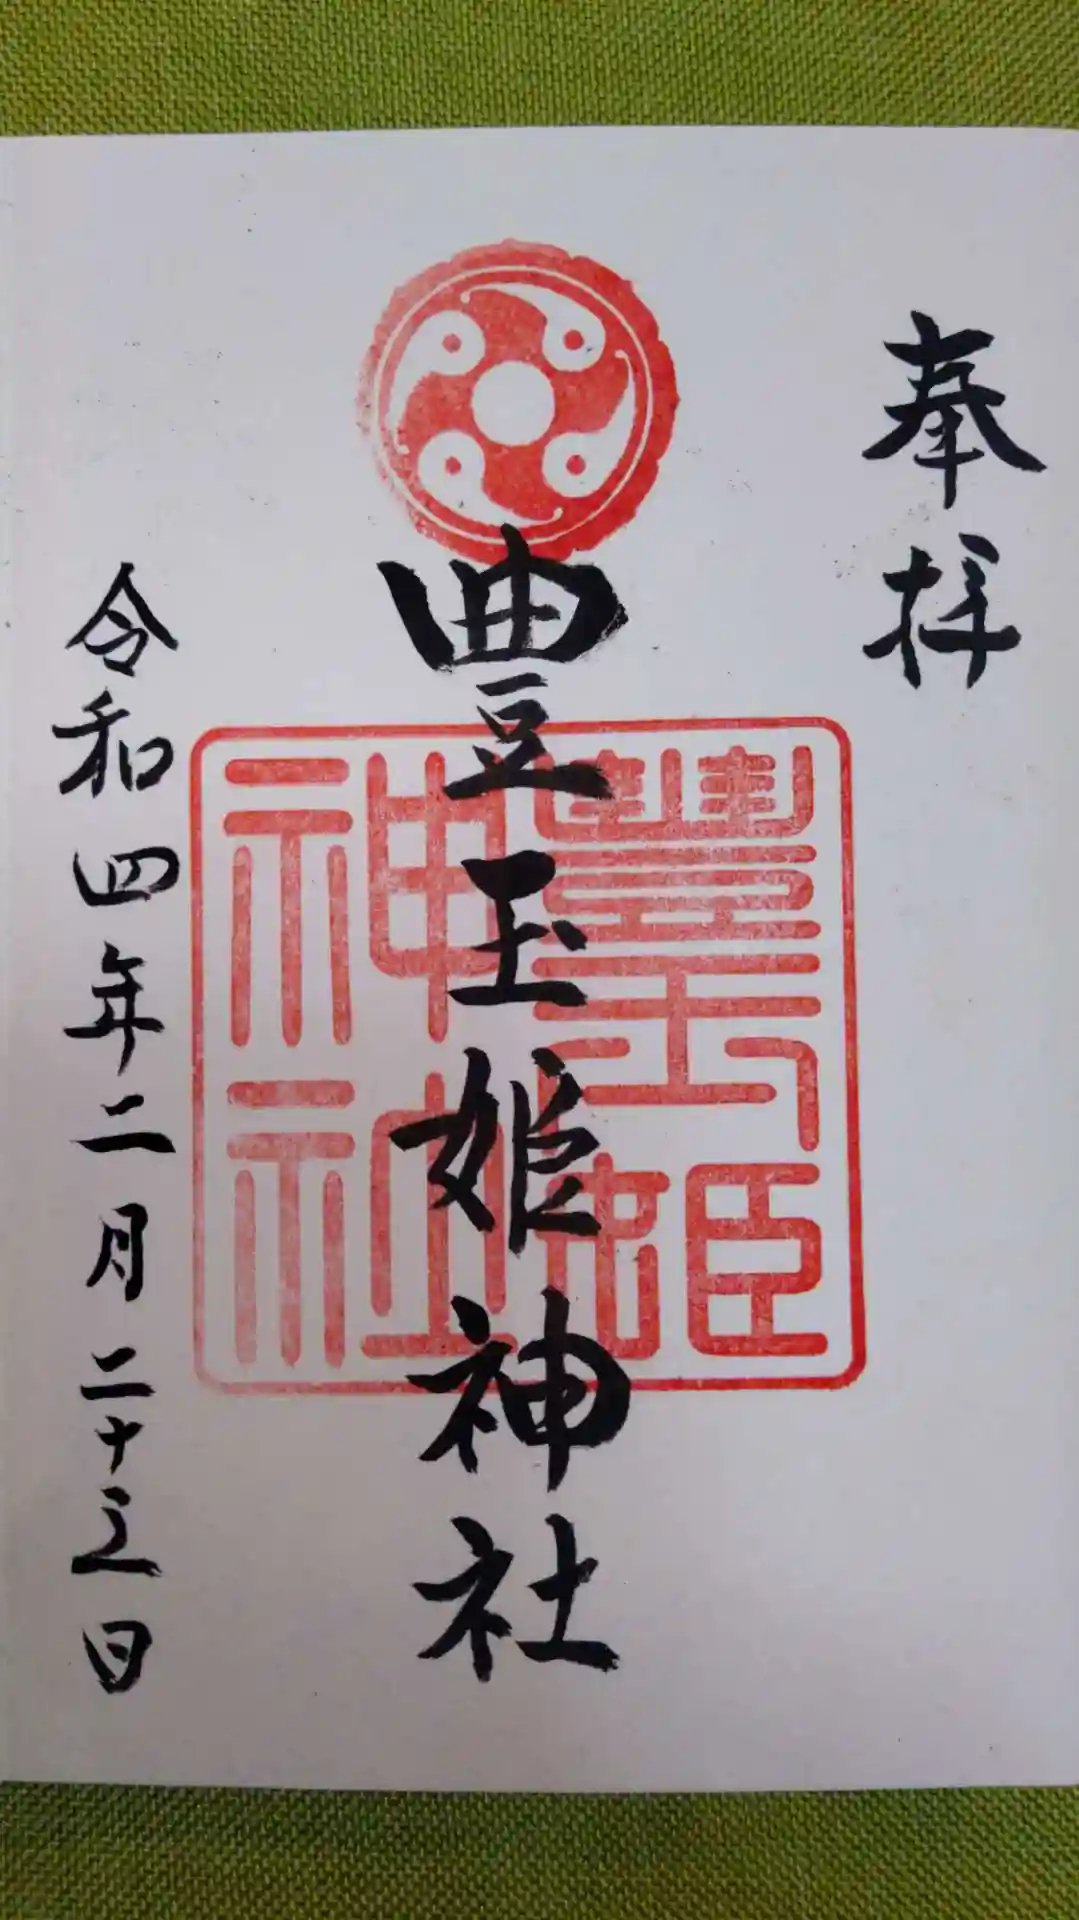 奉拝
豊玉姫神社
豐玉姫
神社
令和四年二月二十三日